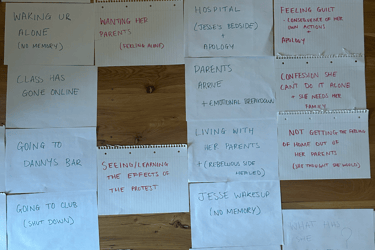 WAKING UP
ALONE
(NO MEMORY)
WANTING HER
PARENTS
(FEELING ALONE)
HOSPITAL
(JESSE'S BEDSIDE)
+
APOLOGY
FEELING GUILT
- CONSEQUENCES OF HER
OWN ACTIONS
APOLOGY
CLASS HAS
GONE ONLINE
PARENTS
ARRIVE
+ EMOTIONAL BREAKDOWN
CONFESSION SHE
CAN'T DO IT ALONE
+ SHE NEEDS HER
FAMILY
GOING TO
DANNYS BAR
SEEING/LEARNING
THE EFFECTS OF
THE PROTEST
LIVING WITH
HER PARENTS
+ (REBELLIOUS SIDE
NOT GETTING THE FEELING
OF HOME OUT OF
HER PARENTS
(SHE THOUGHT SHE WOULD)
GOING TO CLUB
(SHUT DOWN)
JESSE WAKES UP
(NO MEMORY)
WHAT
SHE